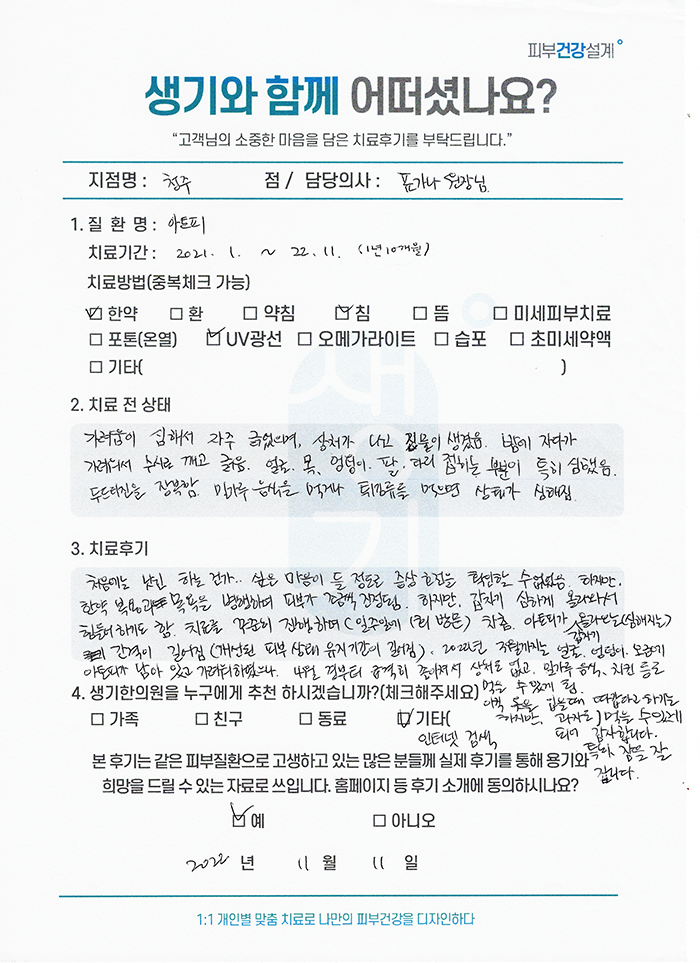 피부건강설계
생기와 함께 어떠셨나요?
“고객님의 소중한 마음을 담은 치료후기를 부탁드립니다.”
지점명 : 청주 점 / 담당의사 : 표가나 원장님
1. 질 환 명 : 아토피
치료기간 : 2021. 1. ~ 22. 11. (1년 10개월)
치료방법(중복체크 가능)
☑ 한약 □ 환 □ 약침 ☑ 침 □ 뜸 □ 미세피부치료
□ 포톤(온열) ☑ UV광선 □ 오메가라이트 □ 습포 □ 초미세약액
□ 기타( )
2. 치료 전 상태
가려움이 심해서 자주 긁었으며, 상처가 나고 진물이 생겼음. 밤에 자다가
가려워서 수시로 깨고 긁음. 얼굴, 목, 엉덩이, 팔, 다리 접히는 부분이 특히 심했음.
두드러진을 장복함. 밀가루 음식을 먹거나 튀김류를 먹으면 상태가 심해짐.
3. 치료후기
처음에는 낫긴 하는 건가.. 싶은 마음이 들 정도로 증상 호전을 확인할 수 없었음. 하지만,
한약 복용과 목욕을 병행하며 피부가 조금씩 진정됨. 하지만, 갑자기 심하게 올라와서
힘들어하기도 함. 치료를 꾸준히 진행하며 (일주일에 1회 방문) 차츰, 아토피가 갑자기 올라오는(심해지는)
간격이 길어짐 (개선된 피부 상태 유지기간이 길어짐). 2022년 저번까지는 얼굴, 엉덩이, 오금에
아토피가 남아 있고 가려워하였으나, 4월 경부터 급격히 좋아져서 상처도 없고, 밀가루 음식, 치킨 등도
먹을 수 있게 됨.
4. 생기한의원을 누구에게 추천 하시겠습니까?(체크해주세요)
□ 가족 □ 친구 □ 동료 ☑ 기타(
인터넷 검색
이백 목욕을 할 때 따갑다고 하기는
하지만, 과자도) 먹을 수 있게
되어 감사합니다.
특히, 잠을 잘
잡니다.
본 후기는 같은 피부질환으로 고생하고 있는 많은 분들께 실제 후기를 통해 용기와
희망을 드릴 수 있는 자료로 쓰입니다. 홈페이지 등 후기 소개에 동의하시나요?
☑ 예 □ 아니오
2022 년 11 월 11 일
1:1 개인별 맞춤 치료로 나만의 피부건강을 디자인하다